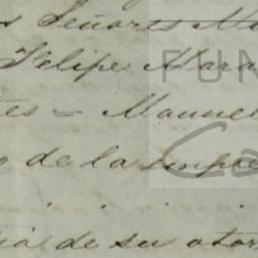 s Señores Ma
Felipe Mara
tes = Manuel
o de la impre
ia de su otor
FUN
Ca